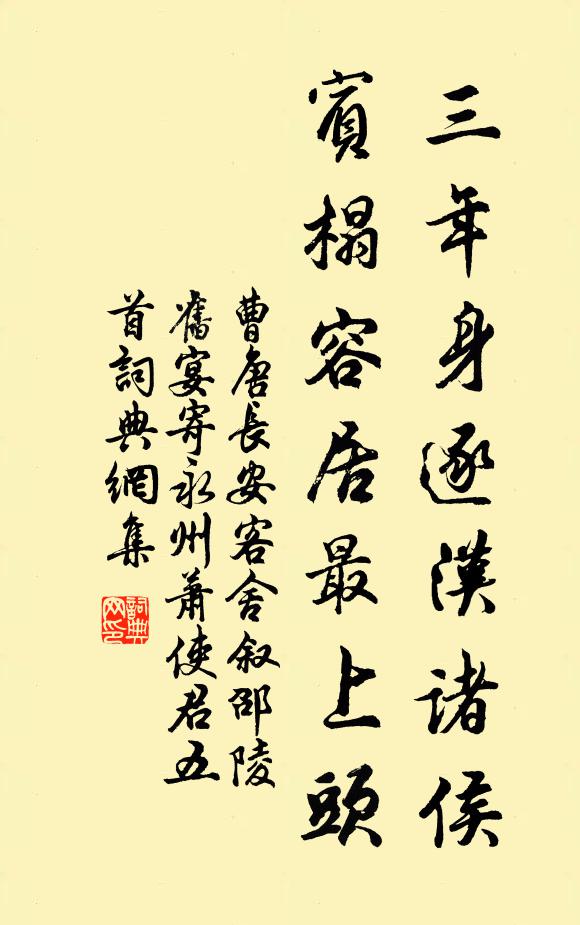 三年身逐漢諸侯
賓榻容居最上頭
曹唐長安客舍叙邵陵
舊宴寄永州蕭使君五
首詞典網集
詞典网印